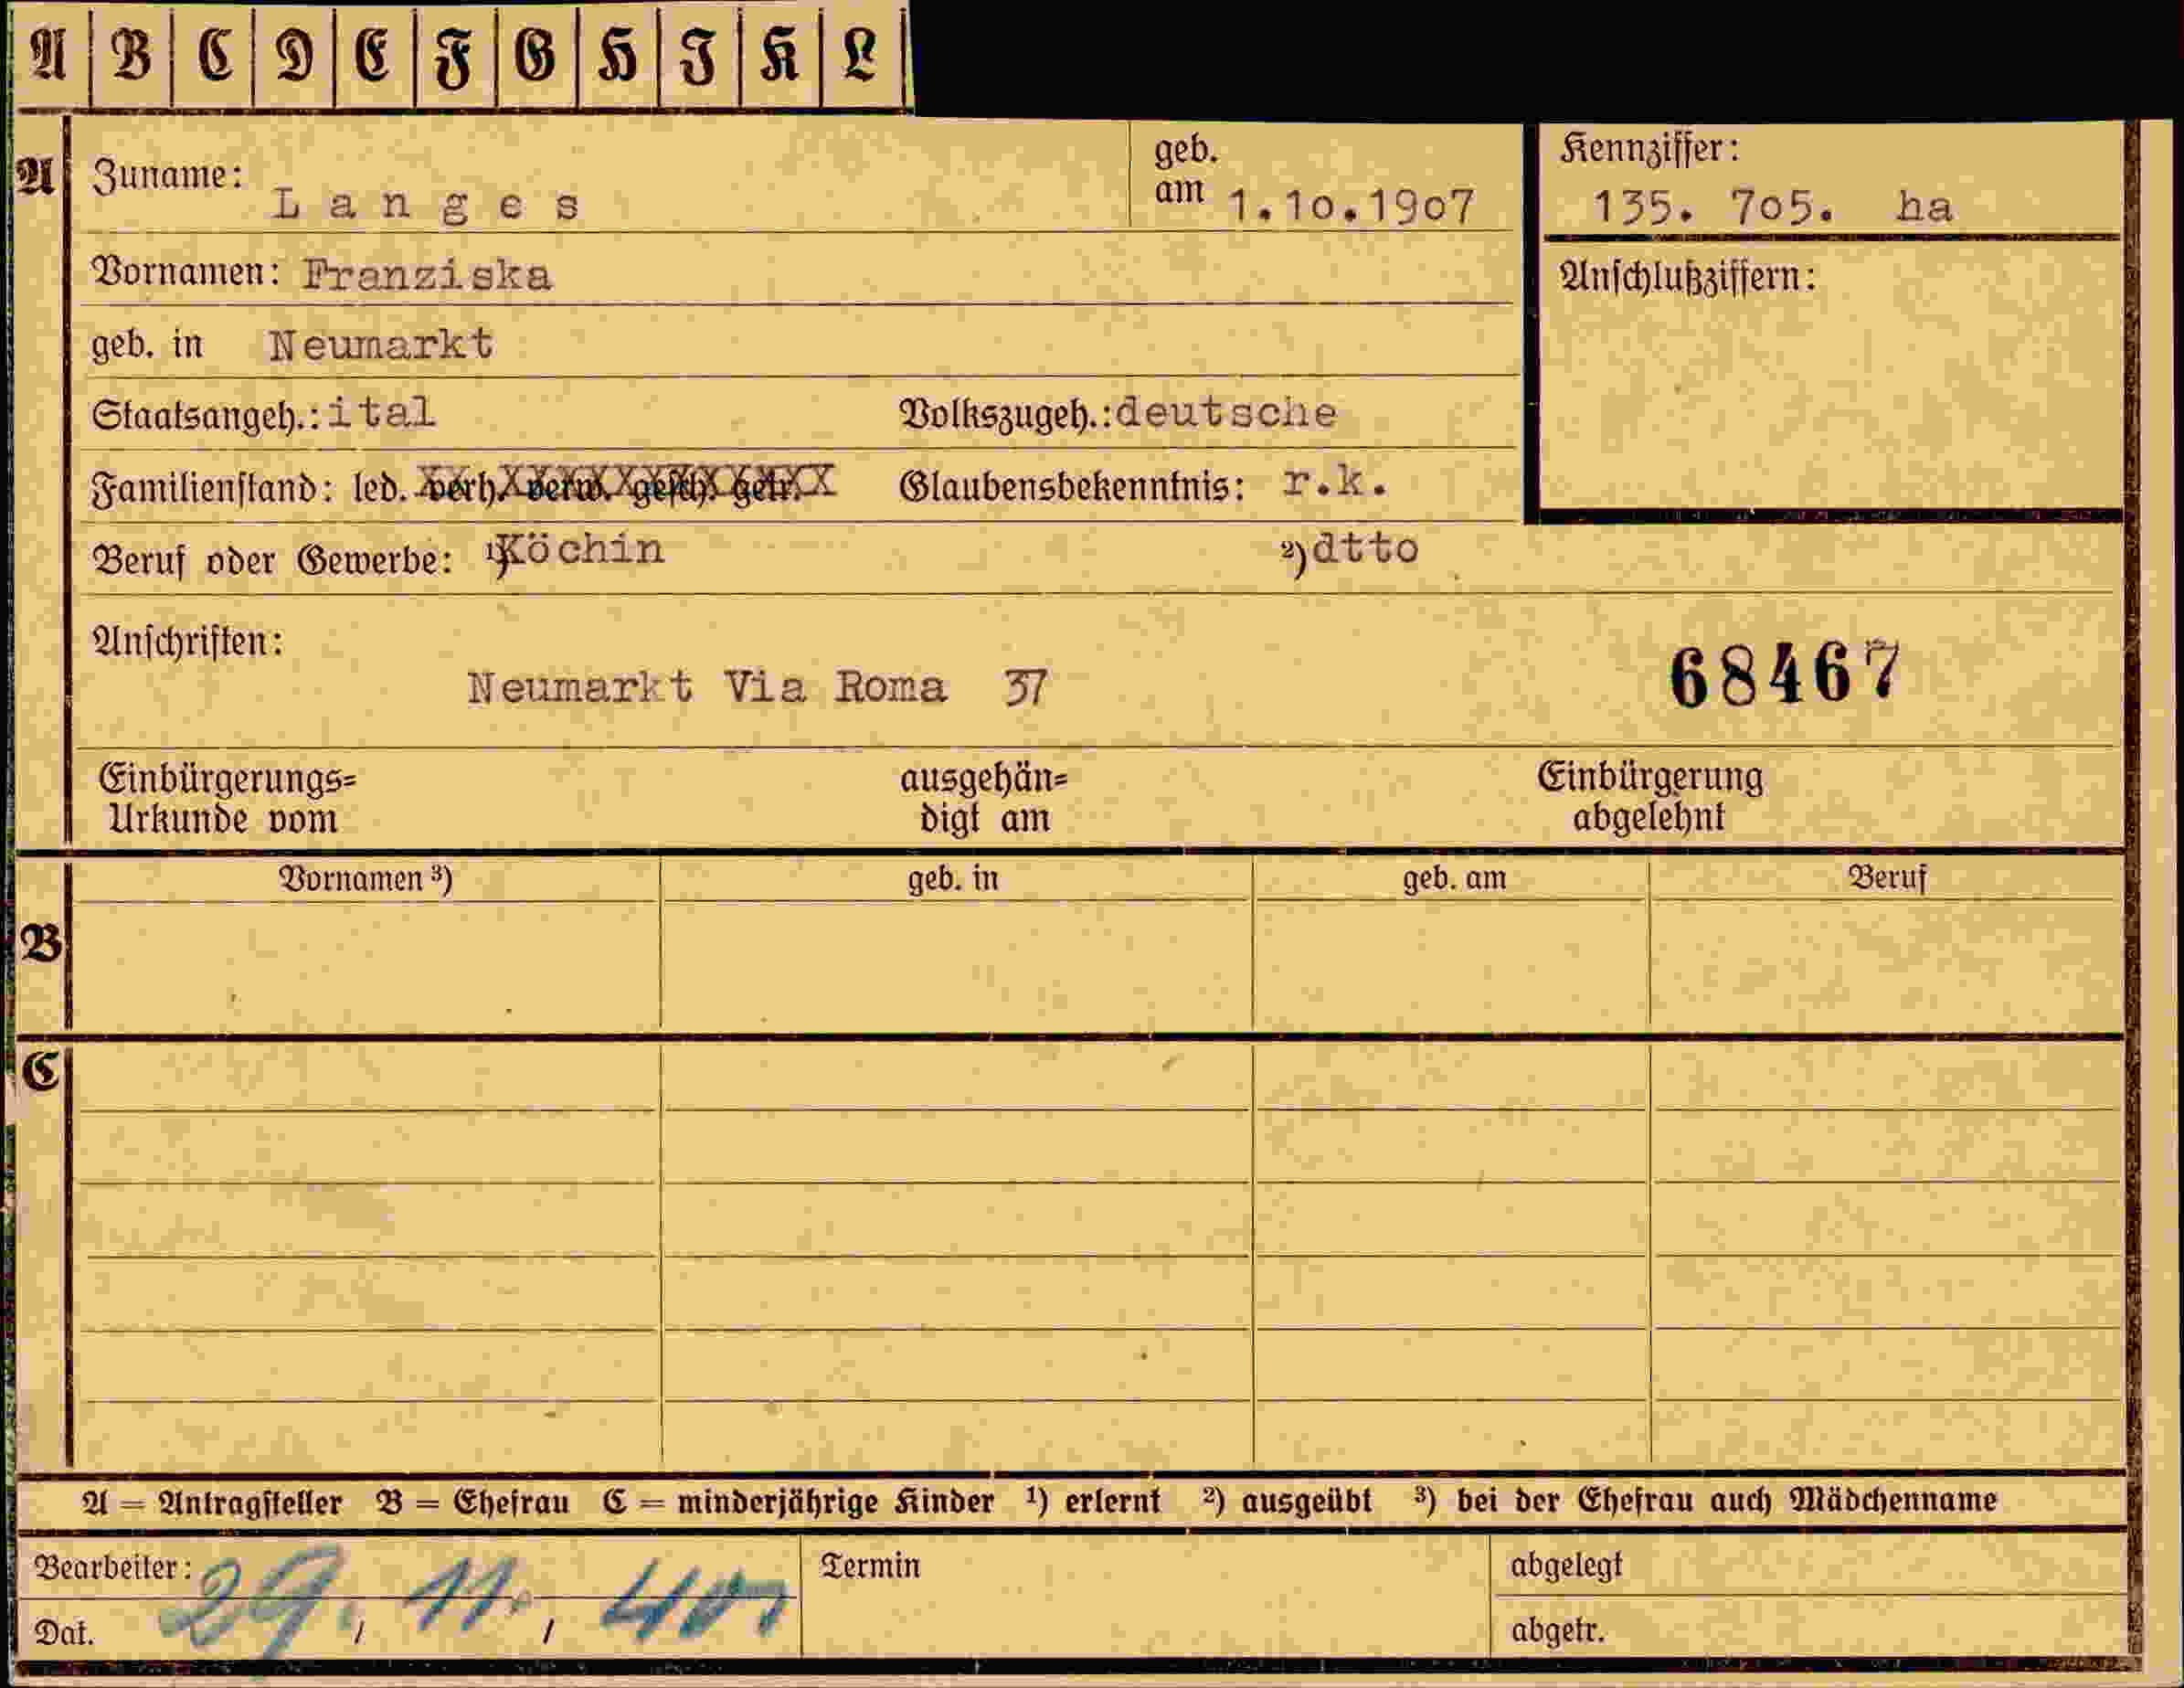 A B C D E F G H I K L
A Zuname: Langes geb. am 1.10.1907 Kennziffer: 135. 705. ha
Vornamen: Franziska Anschlußziffern:
geb. in Neumarkt
Staatsangeh.: ital Volkszugeh.: deutsche
Familienstand: led. verh. verw. gesch. getr. Glaubensbekenntnis: r.k.
Beruf oder Gewerbe: 1) Köchin 2) dtto
Anschriften:
Neumarkt Via Roma 37 68467
Einbürgerungs= ausgehän= Einbürgerung
Urkunde vom digt am abgelehnt
Vornamen 3) geb. in geb. am Beruf
B
C
A = Antragsteller B = Ehefrau C = minderjährige Kinder 1) erlernt 2) ausgeübt 3) bei der Ehefrau auch Mädchenname
Bearbeiter: Termin abgelegt
Dat. 29. 11. 40 abgetr.